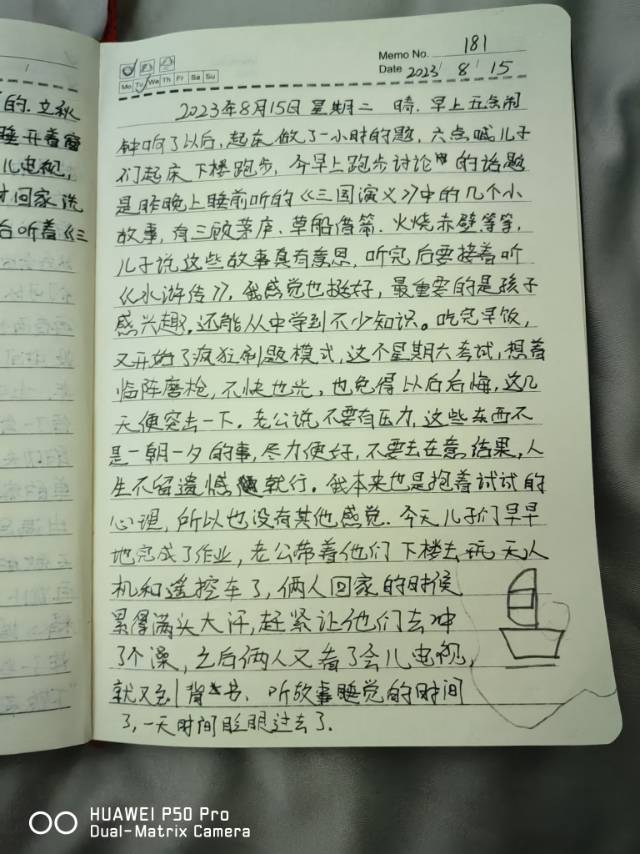 的.立秋
睡开着窗
儿电视,
时回家洗
后听着《三
Memo No. 181
Mo Tu We Th Fr Sa Su
Date 2023 / 8 / 15
2023年8月15日 星期二 晴.早上五点闹
钟响了以后,起床做了一小时的题,六点喊儿子
们起床下楼跑步,今早上跑步讨论中的话题
是昨晚上睡前听的《三国演义》中的几个小
故事,有三顾茅庐.草船借箭.火烧赤壁等等,
儿子说这些故事真有意思,听完后要接着听
《水浒传》,我感觉也挺好,最重要的是孩子
感兴趣,还能从中学到不少知识。吃完早饭,
又开始了疯狂刷题模式,这个星期六考试,想着
临阵磨枪,不快也光,也免得以后后悔,这几
天便突击一下.老公说不要有压力,这些东西不
是一朝一夕的事,尽力便好,不要去在意结果,人
生不留遗憾就行.我本来也是抱着试试的
心理,所以也没有其他感觉.今天儿子们早早
地完成了作业,老公带着他们下楼去玩无人
机和遥控车了,俩人回家的时候
累得满头大汗,赶紧让他们去冲
了个澡,之后俩人又看了会儿电视,
就又到背书.听故事睡觉的时间
了,一天时间眨眼过去了.
HUAWEI P50 Pro
Dual-Matrix Camera